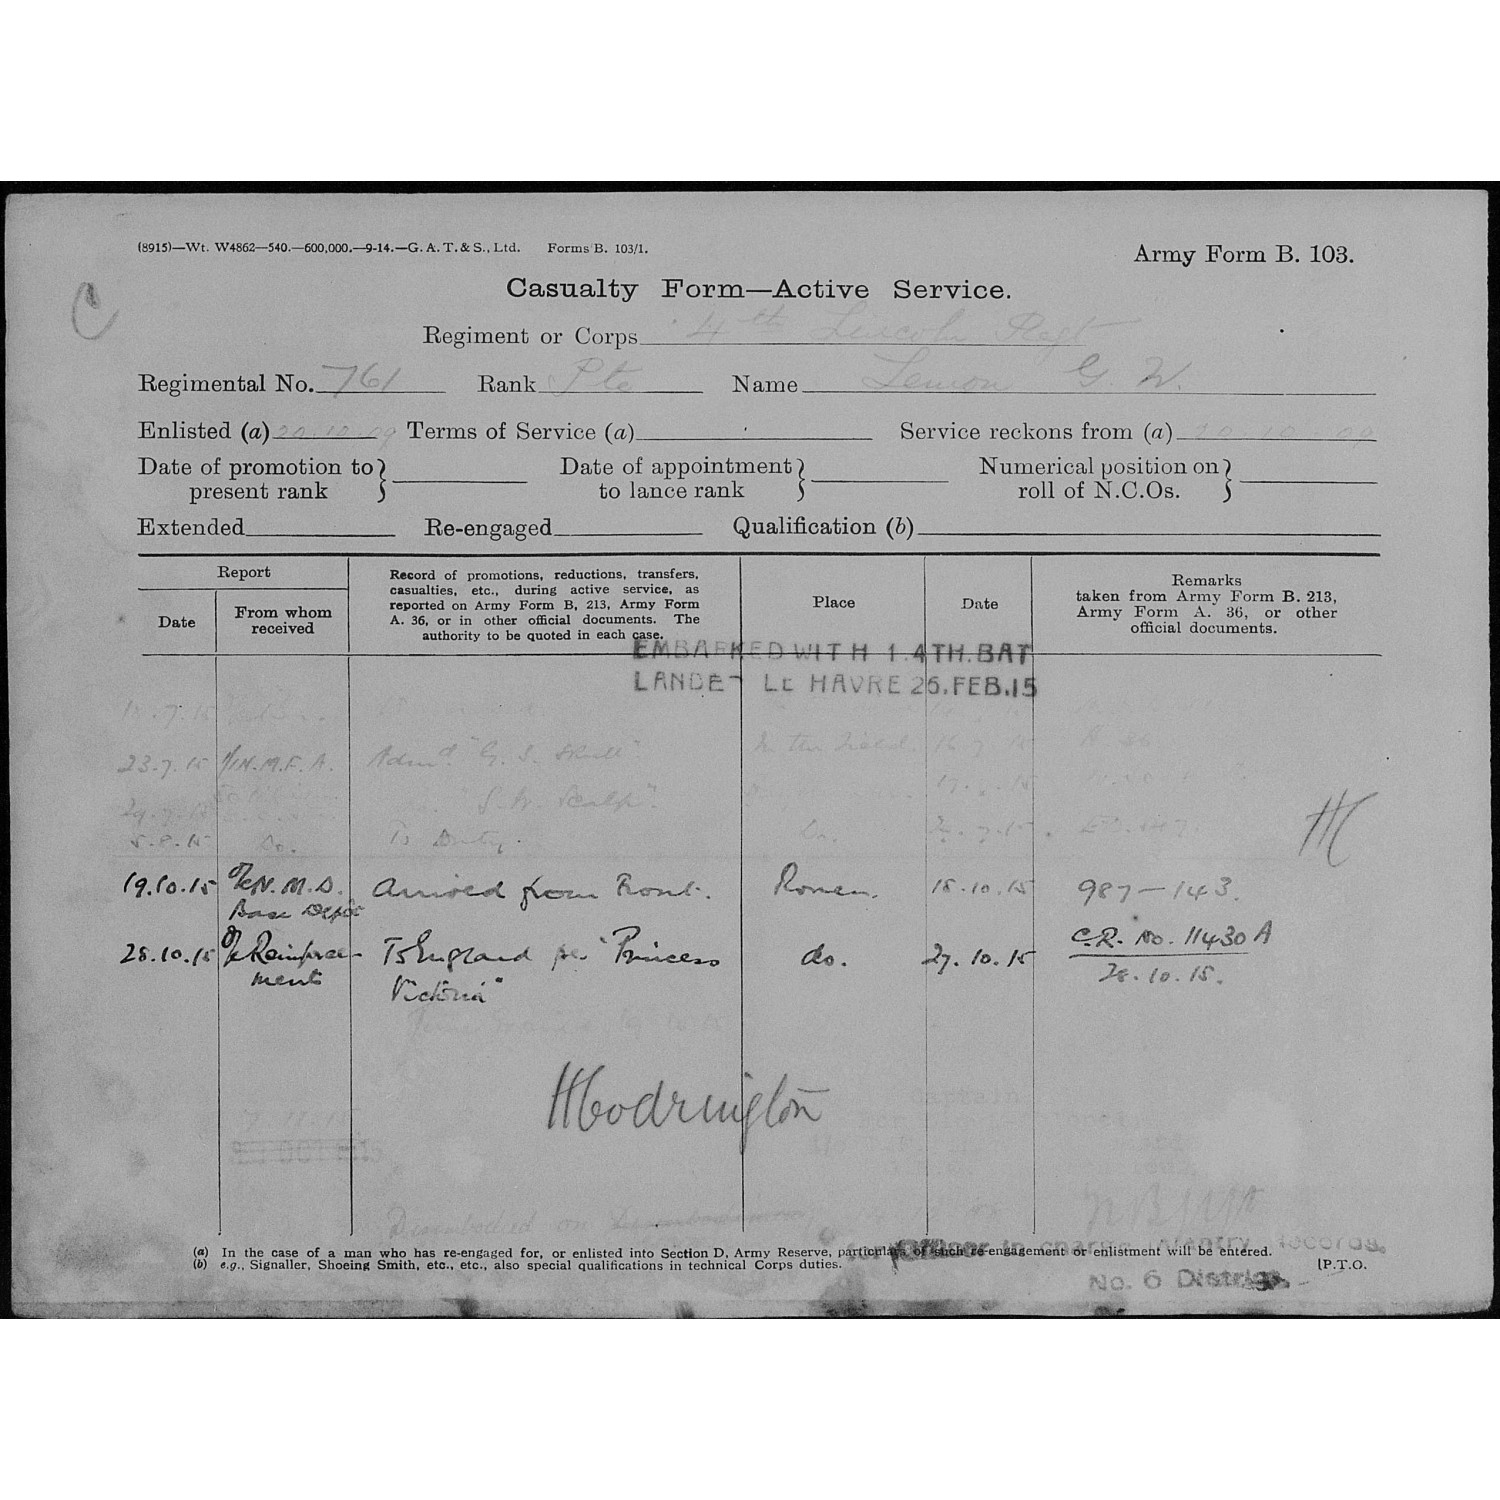 (8915)—Wt. W4862—540.—600,000.—9-14.—G. A. T. & S., Ltd. Forms B. 103/1.
Army Form B. 103.
C
Casualty Form—Active Service.
Regiment or Corps 4th Lincoln Regt
Regimental No. 761 Rank Pte Name Lemon G. W.
Enlisted (a) 20.10.09 Terms of Service (a) Service reckons from (a) 20.10.09
Date of promotion to present rank } Date of appointment to lance rank } Numerical position on roll of N.C.Os. }
Extended Re-engaged Qualification (b)
Report
Date
From whom received
Record of promotions, reductions, transfers,
casualties, etc., during active service, as
reported on Army Form B, 213, Army Form
A. 36, or in other official documents. The
authority to be quoted in each case.
Place
Date
Remarks
taken from Army Form B. 213,
Army Form A. 36, or other
official documents.
EMBARKED WITH 1.4TH.BAT
LANDE LE HAVRE 26.FEB.15
23.7.15 1/1N.M.F.A. Admd "G. S. Skull" In the Field. 16.7.15
29.7.15 "S. W. Scalp".
5.8.15 Do. To Duty. Do.
19.10.15 N.M.D. Arrived from Front. Rouen. 18.10.15 987—143.
Base Depot
28.10.15 Reinforce- To England per "Princess do. 27.10.15 C.R. No. 11430 A
ment Victoria" 28.10.15.
HCodrington
7.11.15
Captain
Disembodied on
for Officer in charge Infantry Records.
No. 6 District.
(a) In the case of a man who has re-engaged for, or enlisted into Section D, Army Reserve, particulars of such re-engagement or enlistment will be entered.
(b) e.g., Signaller, Shoeing Smith, etc., etc., also special qualifications in technical Corps duties.
[P.T.O.